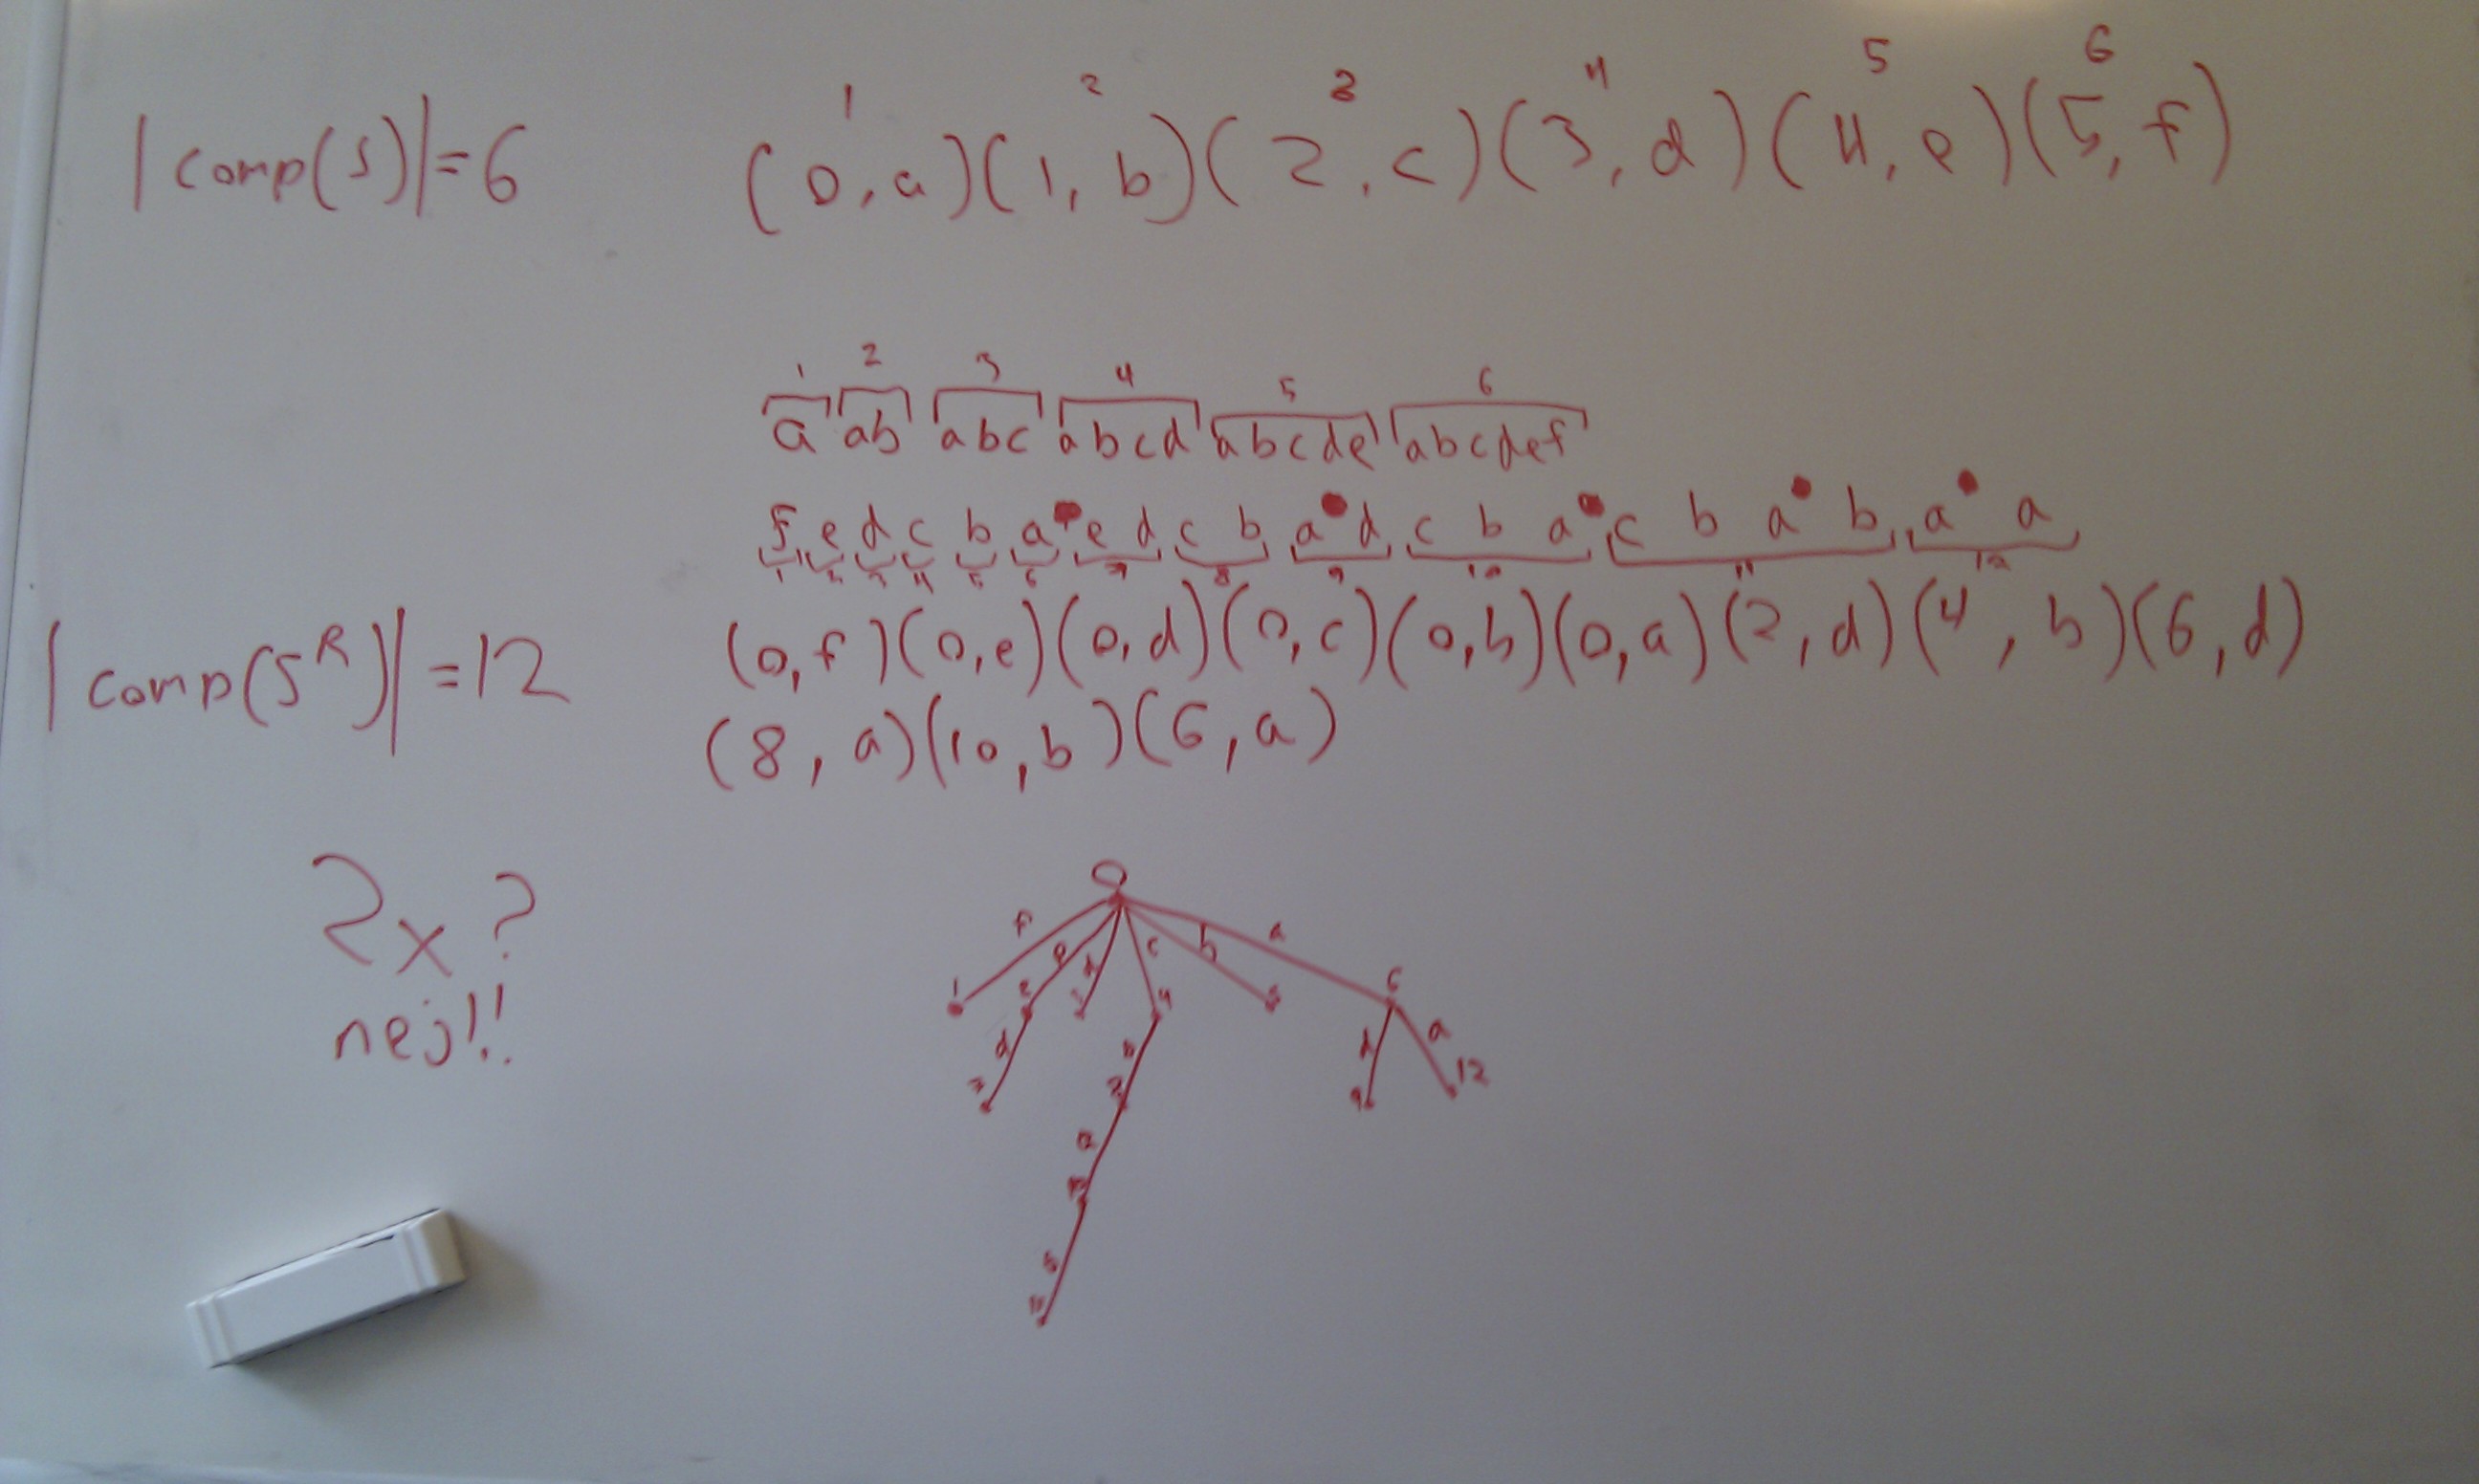 1 2 3 4 5 6
|comp(S)|=6 (0,a)(1,b)(2,c)(3,d)(4,e)(5,f)
1 2 3 4 5 6
a ab abc abcd abcde abcdef
f e d c b a e d c b a d c b a c b a b a a
1 2 3 4 5 6 7 8 9 10 11 12
|comp(S^R)|=12 (0,f)(0,e)(0,d)(0,c)(0,b)(0,a)(2,d)(4,b)(6,d)
(8,a)(10,b)(6,a)
2x?
nej!!
0
f e d c b a
1 2 3 4 5 6
d b d a
7 8 9 12
a
10
b
11